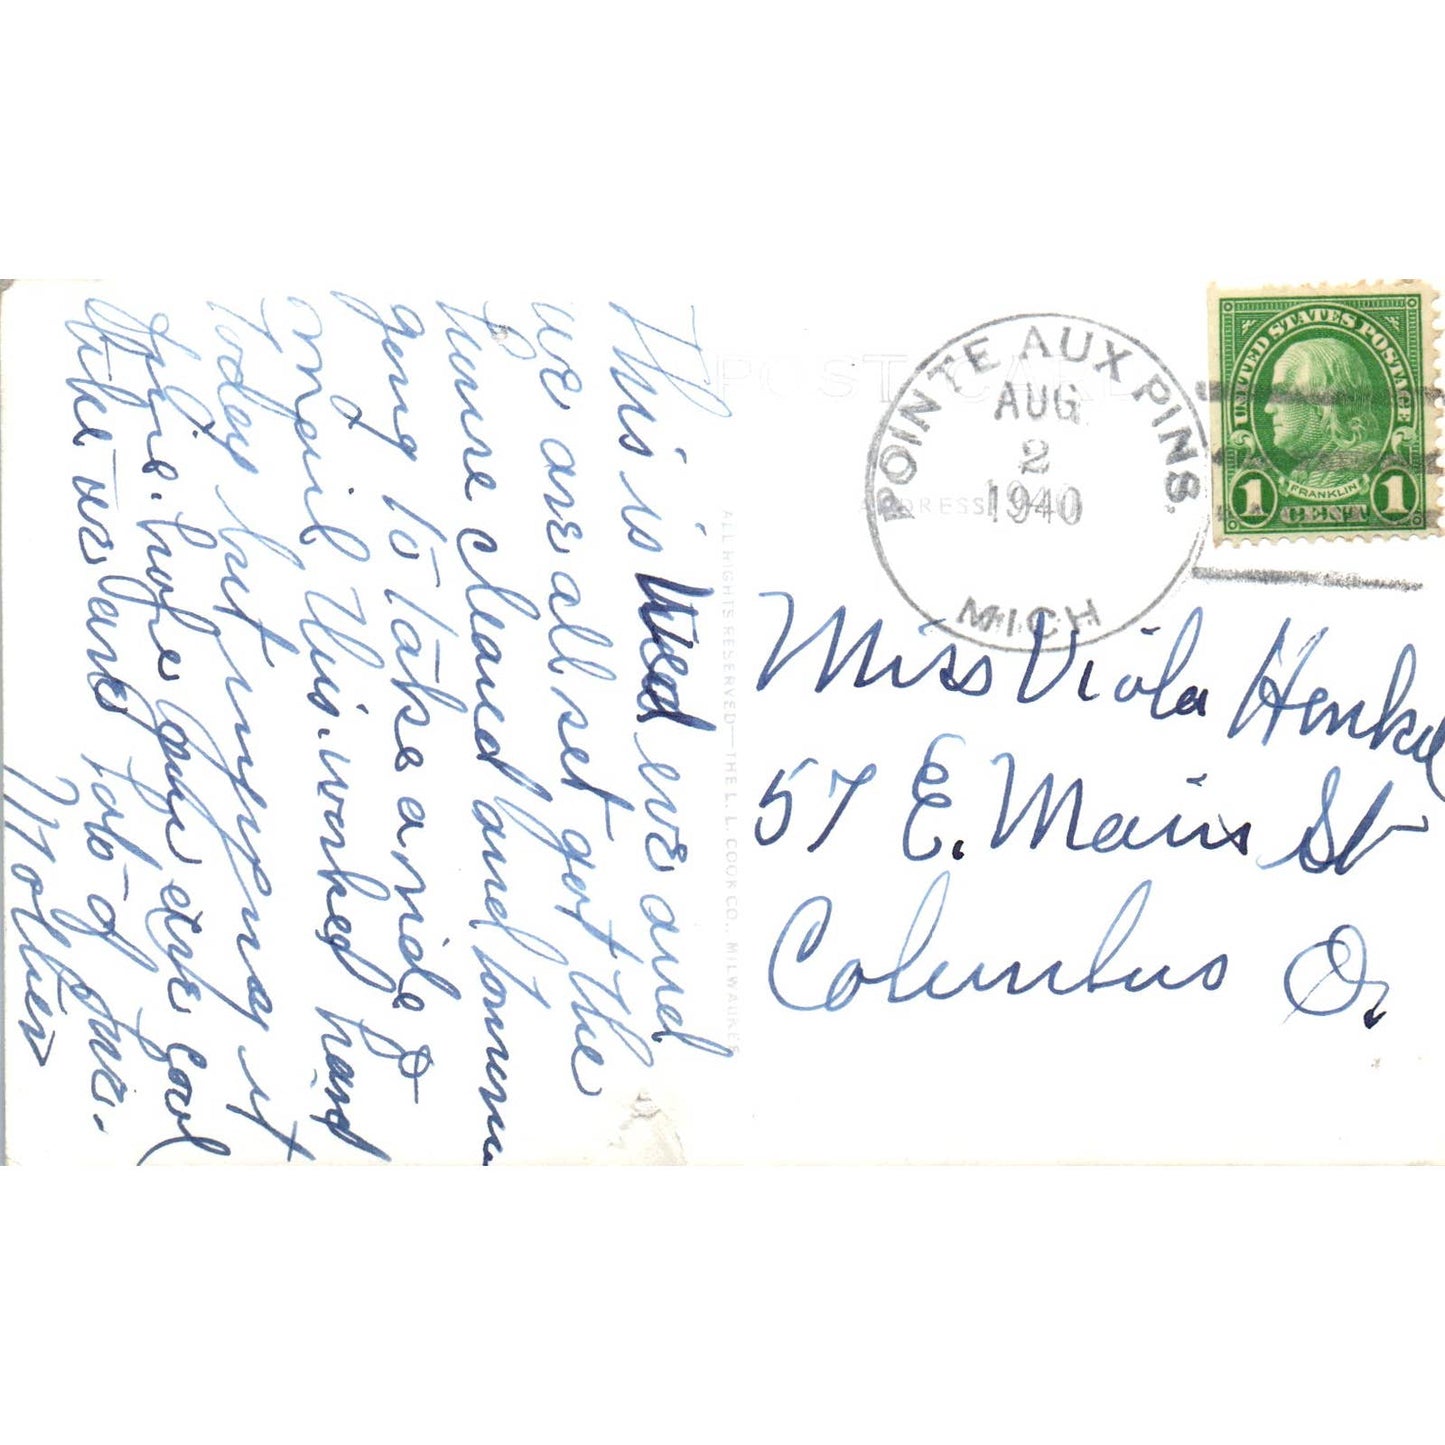 This is Wed eve and
we are all set got the
house cleaned and tommor
going to take a ride to
mail this. worked hard
today but enjoying it
fine. hope you are well
like we have lots of fun.
Mother
POST CARD
ADDRESS
ALL RIGHTS RESERVED—THE L. L. COOK CO., MILWAUKEE
POINTE AUX PINS.
AUG
2
1940
MICH
UNITED STATES POSTAGE
FRANKLIN
1 CENT 1
Miss Viola Henkel
57 E. Main St
Columbus O.